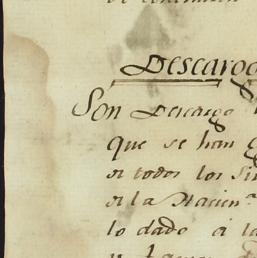 Descargo
Son Descargo
que se han
a todos los Si
a la Hacien.
lo dado a la